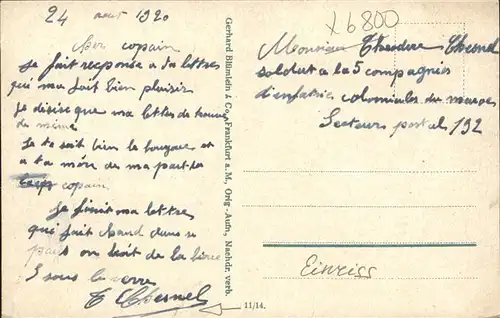 24 aout 1920
Mon copain
Je fait reeponse a ta lettres
qui ma fait bien plaisir
Je desise que ma lettes de trouve
de meme
Je te sait bien le bonjour et
a ta mère de ma part
copain
Je finit ma lettre
qui fait chaud dans se
pais on boit de la biere
5 sous le verre
T Chesnel
Gerhard Blümlein & Co., Frankfurt a. M., Orig.-Aufn., Nachdr. verb.
11/14.
X6800
Monsieur Theodore Chesnel
soldat a la 5 compagnies
d'enfatrie coloniales du maroc
Secteurs postal 192
Einriss